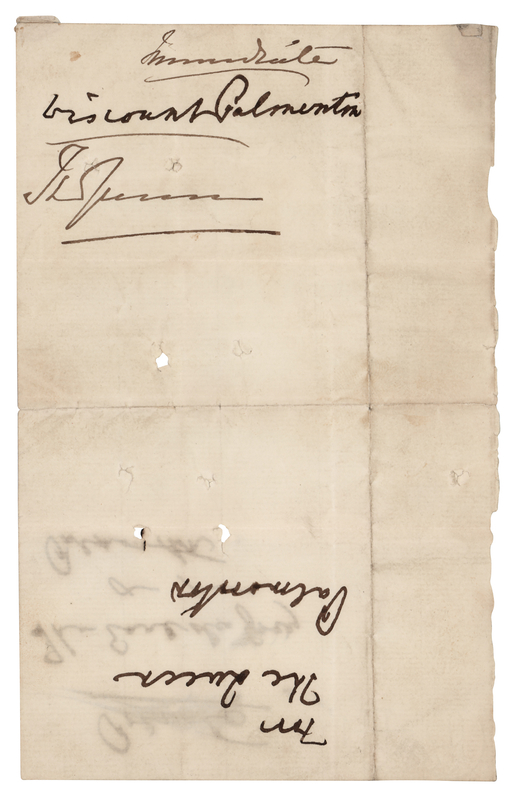 Immediate
Viscount Palmerston
The Queen
For
The Queen
Palmerston